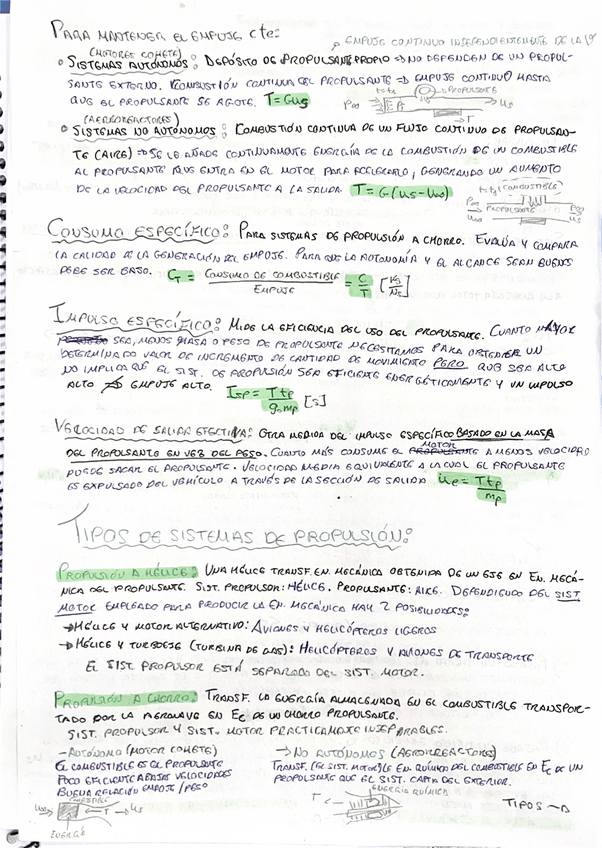 PARA MANTENER EL EMPUJE cte:
EMPUJE CONTINUO INDEPENDIENTEMENTE DE LA V
(MOTORES COHETE)
• SISTEMAS AUTÓNOMOS: DEPÓSITO DE PROPULSANTE PROPIO → NO DEPENDEN DE UN PROPUL-
SANTE EXTERNO. COMBUSTIÓN CONTINUA DEL PROPULSANTE → EMPUJE CONTINUO HASTA
QUE EL PROPULSANTE SE AGOTE. T = G us
PROPULSANTE
P∞
us
T
(AERORREACTORES)
• SISTEMAS NO AUTÓNOMOS: COMBUSTIÓN CONTINUA DE UN FLUJO CONTINUO DE PROPULSAN-
TE (AIRE) → SE LE AÑADE CONTINUAMENTE ENERGÍA DE LA COMBUSTIÓN DE UN COMBUSTIBLE
AL PROPULSANTE QUE ENTRA EN EL MOTOR PARA ACELERARLO, GENERANDO UN AUMENTO
DE LA VELOCIDAD DEL PROPULSANTE A LA SALIDA T = G(us - u∞)
COMBUSTIBLE
P∞ PROPULSANTE P∞
us
CONSUMO ESPECÍFICO: PARA SISTEMAS DE PROPULSIÓN A CHORRO. EVALÚA Y COMPARA
LA CALIDAD DE LA GENERACIÓN DEL EMPUJE. PARA QUE LA AUTONOMÍA Y EL ALCANCE SEAN BUENOS
DEBE SER BAJO. CT = CONSUMO DE COMBUSTIBLE / EMPUJE = C/T [Kg/Ns]
IMPULSO ESPECÍFICO: MIDE LA EFICIENCIA DEL USO DEL PROPULSANTE. CUANTO MAYOR
SEA, MENOS MASA O PESO DE PROPULSANTE NECESITAMOS PARA OBTENER UN
DETERMINADO VALOR DE INCREMENTO DE CANTIDAD DE MOVIMIENTO PERO QUE SEA ALTO
NO IMPLICA QUE EL SIST. DE PROPULSIÓN SEA EFICIENTE ENERGÉTICAMENTE Y UN IMPULSO
ALTO ⇏ EMPUJE ALTO. Isp = T tp / g0 mp [s]
VELOCIDAD DE SALIDA EFECTIVA: OTRA MEDIDA DEL IMPULSO ESPECÍFICO BASADO EN LA MASA
DEL PROPULSANTE EN VEZ DEL PESO. CUANTO MÁS CONSUME EL MOTOR A MENOS VELOCIDAD
PUEDE SACAR EL PROPULSANTE. VELOCIDAD MEDIA EQUIVALENTE A LA CUAL EL PROPULSANTE
ES EXPULSADO DEL VEHÍCULO A TRAVÉS DE LA SECCIÓN DE SALIDA ue = T tp / mp
TIPOS DE SISTEMAS DE PROPULSIÓN:
PROPULSIÓN A HÉLICE: UNA HÉLICE TRANSF. EN. MECÁNICA OBTENIDA DE UN EJE EN EN. MECÁ-
NICA DEL PROPULSANTE. SIST. PROPULSOR: HÉLICE. PROPULSANTE: AIRE. DEPENDIENDO DEL SIST
MOTOR EMPLEADO PARA PRODUCIR LA EN. MECÁNICA HAY 2 POSIBILIDADES:
→ HÉLICE Y MOTOR ALTERNATIVO: AVIONES Y HELICÓPTEROS LIGEROS
→ HÉLICE Y TURBOEJE (TURBINA DE GAS): HELICÓPTEROS Y AVIONES DE TRANSPORTE
EL SIST. PROPULSOR ESTÁ SEPARADO DEL SIST. MOTOR.
PROPULSIÓN A CHORRO: TRANSF. LA ENERGÍA ALMACENADA EN EL COMBUSTIBLE TRANSPOR-
TADO POR LA AERONAVE EN Ec DE UN CHORRO PROPULSANTE.
SIST. PROPULSOR Y SIST. MOTOR PRACTICAMENTE INSEPARABLES.
- AUTÓNOMO (MOTOR COHETE)
EL COMBUSTIBLE ES EL PROPULSANTE
POCO EFICIENTE A BAJAS VELOCIDADES
BUENA RELACIÓN EMPUJE/PESO
→ NO AUTÓNOMOS (AERORREACTORES)
TRANSF. (EL SIST. MOTOR) LA EN. QUÍMICA DEL COMBUSTIBLE EN Ec DE UN
PROPULSANTE QUE EL SIST. CAPTA DEL EXTERIOR.
COMBUSTIBLE
u∞ T us
ENERGÍA
ENERGÍA QUÍMICA
T
TIPOS →